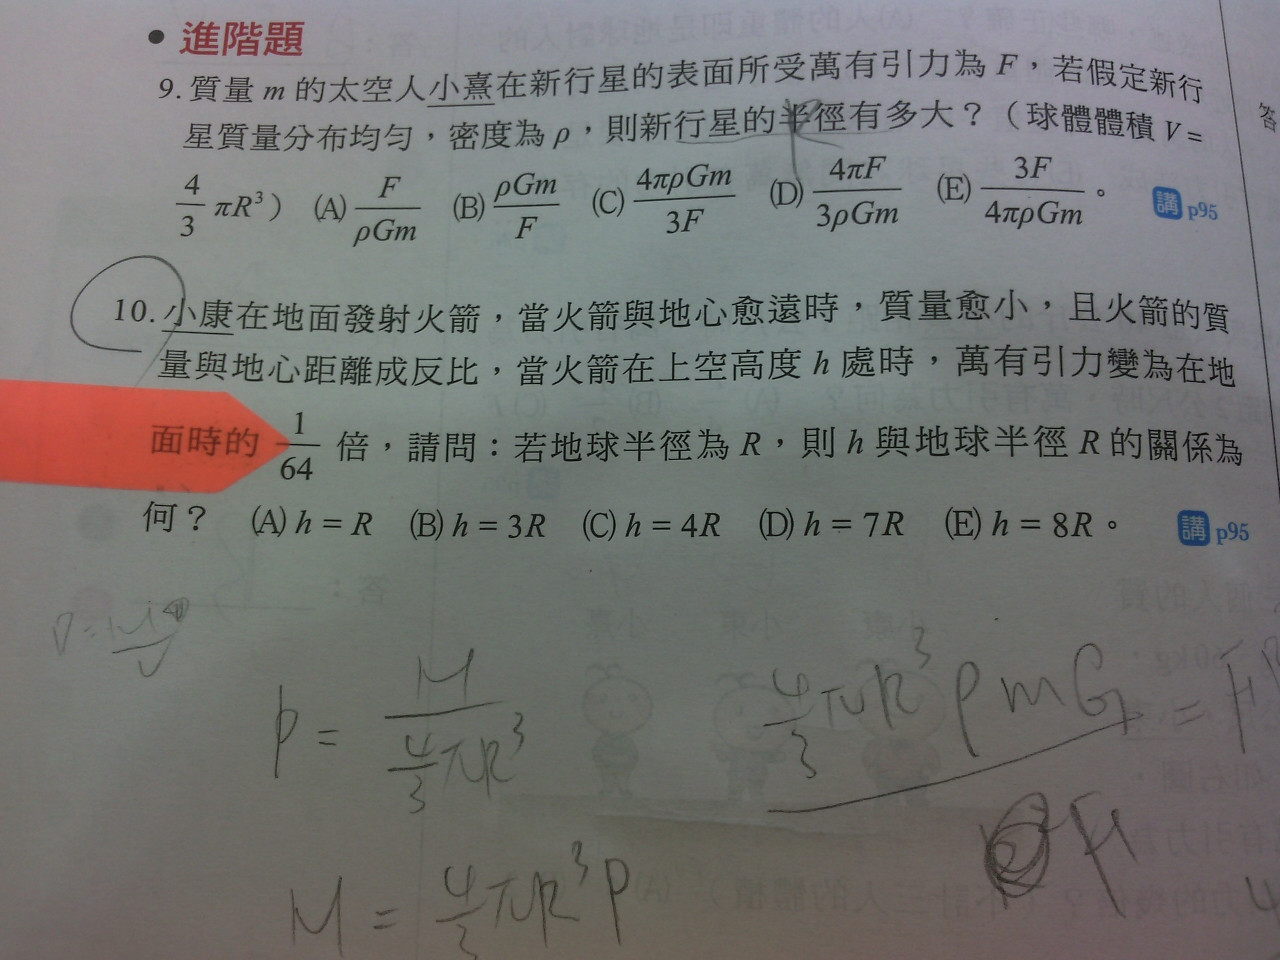 • 進階題
9. 質量 m 的太空人小熹在新行星的表面所受萬有引力為 F，若假定新行
星質量分布均勻，密度為 ρ，則新行星的半徑有多大？（球體體積 V =
4/3 πR³） (A) F/ρGm (B) ρGm/F (C) 4πρGm/3F (D) 4πF/3ρGm (E) 3F/4πρGm 。 講 p95
10. 小康在地面發射火箭，當火箭與地心愈遠時，質量愈小，且火箭的質
量與地心距離成反比，當火箭在上空高度 h 處時，萬有引力變為在地
面時的 1/64 倍，請問：若地球半徑為 R，則 h 與地球半徑 R 的關係為
何？ (A) h = R (B) h = 3R (C) h = 4R (D) h = 7R (E) h = 8R 。 講 p95
答
ρ = M / 4/3 πR³
4/3 πR³ ρ m G =
M = 4/3 πR³ ρ